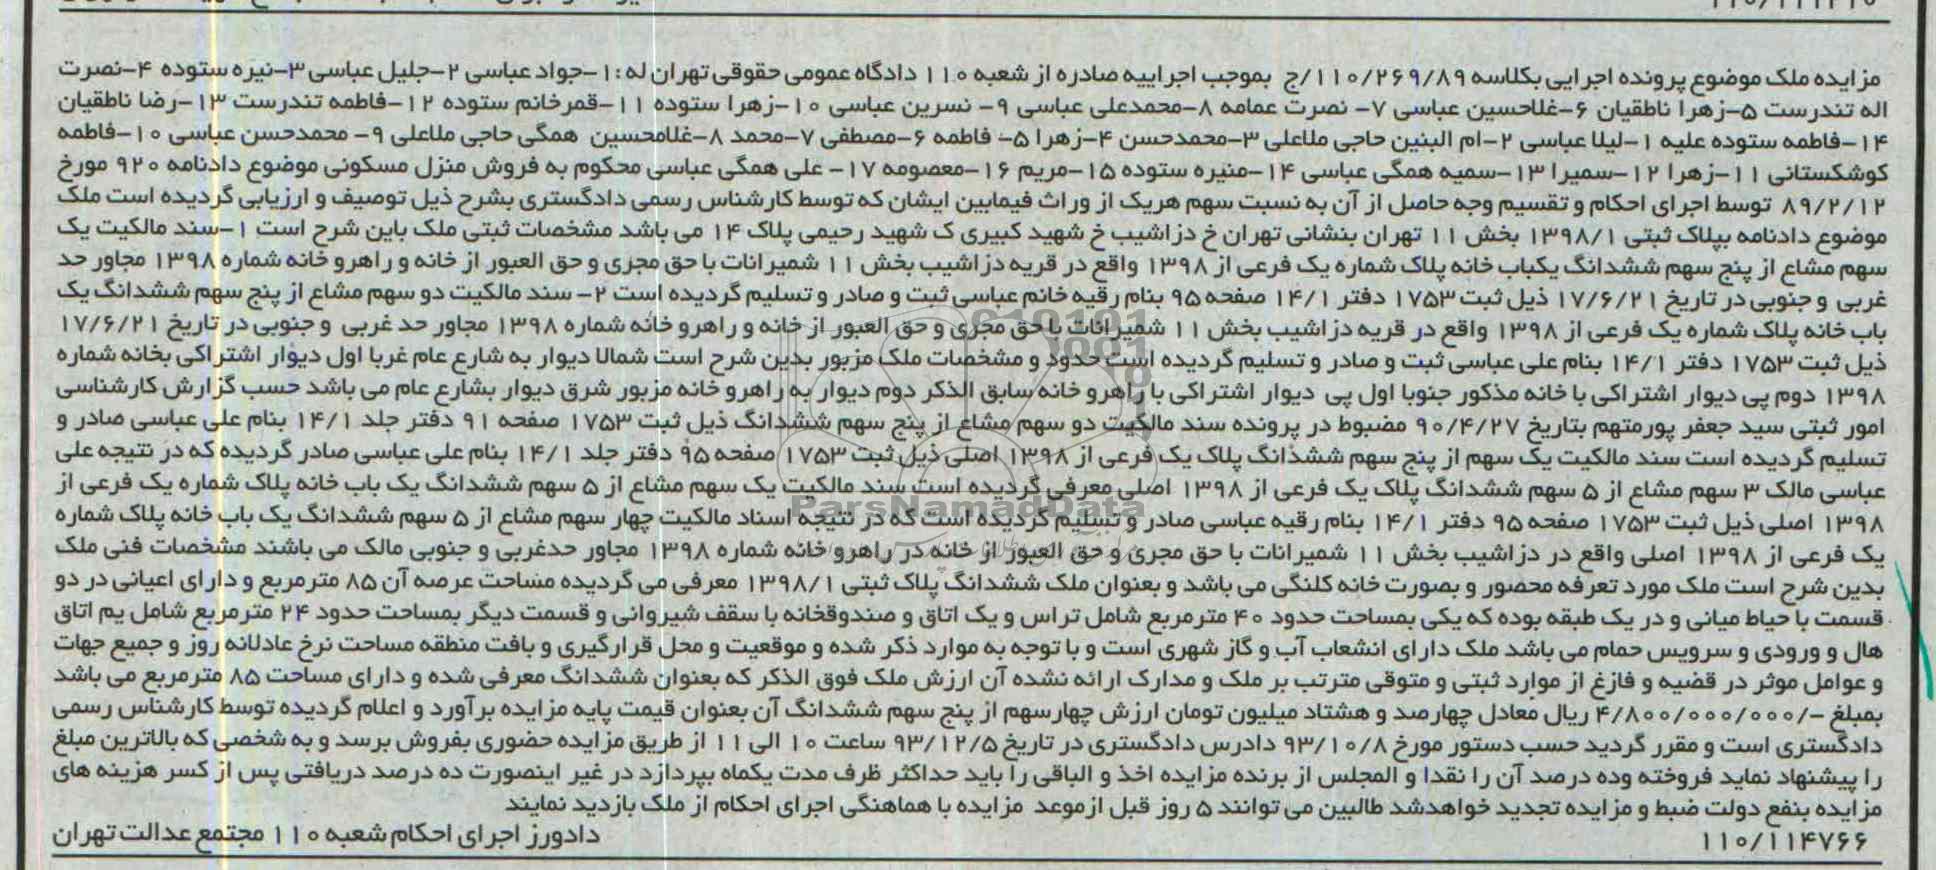 مزایده ملک موضوع پرونده اجرایی بکلاسه ۱۱۰/۲۶۹/۸۹/ج بموجب اجراییه صادره از شعبه ۱۱۰ دادگاه عمومی حقوقی تهران له: ۱-جواد عباسی ۲-جلیل عباسی ۳-نیره ستوده ۴-نصرت
اله تندرست ۵-زهرا ناطقیان ۶-غلاحسین عباسی ۷- نصرت عمامه ۸-محمدعلی عباسی ۹- نسرین عباسی ۱۰-زهرا ستوده ۱۱-قمرخانم ستوده ۱۲-فاطمه تندرست ۱۳-رضا ناطقیان
۱۴-فاطمه ستوده علیه ۱-لیلا عباسی ۲-ام البنین حاجی ملاعلی ۳-محمدحسن ۴-زهرا ۵- فاطمه ۶-مصطفی ۷-محمد ۸-غلامحسین همگی حاجی ملاعلی ۹- محمدحسن عباسی ۱۰-فاطمه
کوشکستانی ۱۱-زهرا ۱۲-سمیرا ۱۳-سمیه همگی عباسی ۱۴-منیره ستوده ۱۵-مریم ۱۶-معصومه ۱۷- علی همگی عباسی محکوم به فروش منزل مسکونی موضوع دادنامه ۹۲۰ مورخ
۸۹/۲/۱۲ توسط اجرای احکام و تقسیم وجه حاصل از آن به نسبت سهم هریک از وراث فیمابین ایشان که توسط کارشناس رسمی دادگستری بشرح ذیل توصیف و ارزیابی گردیده است ملک
موضوع دادنامه بپلاک ثبتی ۱۳۹۸/۱ بخش ۱۱ تهران بنشانی تهران خ دزاشیب خ شهید کبیری ک شهید رحیمی پلاک ۱۴ می باشد مشخصات ثبتی ملک باین شرح است ۱-سند مالکیت یک
سهم مشاع از پنج سهم ششدانگ یکباب خانه پلاک شماره یک فرعی از ۱۳۹۸ واقع در قریه دزاشیب بخش ۱۱ شمیرانات با حق مجری و حق العبور از خانه و راهرو خانه شماره ۱۳۹۸ مجاور حد
غربی و جنوبی در تاریخ ۱۷/۶/۲۱ ذیل ثبت ۱۷۵۳ دفتر ۱۴/۱ صفحه ۹۵ بنام رقیه خانم عباسی ثبت و صادر و تسلیم گردیده است ۲- سند مالکیت دو سهم مشاع از پنج سهم ششدانگ یک
باب خانه پلاک شماره یک فرعی از ۱۳۹۸ واقع در قریه دزاشیب بخش ۱۱ شمیرانات با حق مجری و حق العبور از خانه و راهرو خانه شماره ۱۳۹۸ مجاور حد غربی و جنوبی در تاریخ ۱۷/۶/۲۱
ذیل ثبت ۱۷۵۳ دفتر ۱۴/۱ بنام علی عباسی ثبت و صادر و تسلیم گردیده است حدود و مشخصات ملک مزبور بدین شرح است شمالا دیوار به شارع عام غربا اول دیوار اشتراکی بخانه شماره
۱۳۹۸ دوم پی دیوار اشتراکی با خانه مذکور جنوبا اول پی دیوار اشتراکی با راهرو خانه سابق الذکر دوم دیوار به راهرو خانه مزبور شرق دیوار بشارع عام می باشد حسب گزارش کارشناسی
امور ثبتی سید جعفر پورمتهم بتاریخ ۹۰/۴/۲۷ مضبوط در پرونده سند مالکیت دو سهم مشاع از پنج سهم ششدانگ ذیل ثبت ۱۷۵۳ صفحه ۹۱ دفتر جلد ۱۴/۱ بنام علی عباسی صادر و
تسلیم گردیده است سند مالکیت یک سهم از پنج سهم ششدانگ پلاک یک فرعی از ۱۳۹۸ اصلی ذیل ثبت ۱۷۵۳ صفحه ۹۵ دفتر جلد ۱۴/۱ بنام علی عباسی صادر گردیده که در نتیجه علی
عباسی مالک ۳ سهم مشاع از ۵ سهم ششدانگ پلاک یک فرعی از ۱۳۹۸ اصلی معرفی گردیده است سند مالکیت یک سهم مشاع از ۵ سهم ششدانگ یک باب خانه پلاک شماره یک فرعی از
۱۳۹۸ اصلی ذیل ثبت ۱۷۵۳ صفحه ۹۵ دفتر ۱۴/۱ بنام رقیه عباسی صادر و تسلیم گردیده است که در نتیجه اسناد مالکیت چهار سهم مشاع از ۵ سهم ششدانگ یک باب خانه پلاک شماره
یک فرعی از ۱۳۹۸ اصلی واقع در دزاشیب بخش ۱۱ شمیرانات با حق مجری و حق العبور از خانه در راهرو خانه شماره ۱۳۹۸ مجاور حدغربی و جنوبی مالک می باشند مشخصات فنی ملک
بدین شرح است ملک مورد تعرفه محصور و بصورت خانه کلنگی می باشد و بعنوان ملک ششدانگ پلاک ثبتی ۱۳۹۸/۱ معرفی می گردیده مساحت عرصه آن ۸۵ مترمربع و دارای اعیانی در دو
قسمت با حیاط میانی و در یک طبقه بوده که یکی بمساحت حدود ۴۰ مترمربع شامل تراس و یک اتاق و صندوقخانه با سقف شیروانی و قسمت دیگر بمساحت حدود ۲۴ مترمربع شامل یم اتاق
هال و ورودی و سرویس حمام می باشد ملک دارای انشعاب آب و گاز شهری است و با توجه به موارد ذکر شده و موقعیت و محل قرارگیری و بافت منطقه مساحت نرخ عادلانه روز و جمیع جهات
و عوامل موثر در قضیه و فازغ از موارد ثبتی و متوقی مترتب بر ملک و مدارک ارائه نشده آن ارزش ملک فوق الذکر که بعنوان ششدانگ معرفی شده و دارای مساحت ۸۵ مترمربع می باشد
بمبلغ -/۴/۸۰۰/۰۰۰/۰۰۰ ریال معادل چهارصد و هشتاد میلیون تومان ارزش چهارسهم از پنج سهم ششدانگ آن بعنوان قیمت پایه مزایده برآورد و اعلام گردیده توسط کارشناس رسمی
دادگستری است و مقرر گردید حسب دستور مورخ ۹۳/۱۰/۸ دادرس دادگستری در تاریخ ۹۳/۱۲/۵ ساعت ۱۰ الی ۱۱ از طریق مزایده حضوری بفروش برسد و به شخصی که بالاترین مبلغ
را پیشنهاد نماید فروخته وده درصد آن را نقدا و المجلس از برنده مزایده اخذ و الباقی را باید حداکثر ظرف مدت یکماه بپردازد در غیر اینصورت ده درصد دریافتی پس از کسر هزینه های
مزایده بنفع دولت ضبط و مزایده تجدید خواهدشد طالبین می توانند ۵ روز قبل ازموعد مزایده با هماهنگی اجرای احکام از ملک بازدید نمایند
دادورز اجرای احکام شعبه ۱۱۰ مجتمع عدالت تهران
۱۱۰/۱۱۴۷۶۶
ParsNamadData